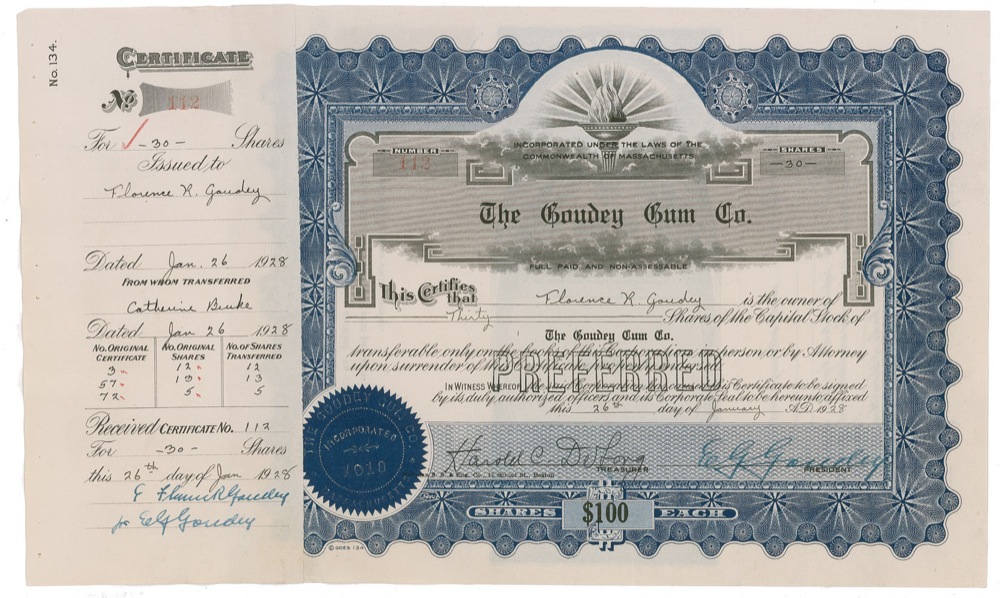 No. 134.
CERTIFICATE
No 112
For -30- Shares
Issued to
Florence R. Goudey
Dated Jan. 26 1928
FROM WHOM TRANSFERRED
Catherine Burke
Dated Jan 26 1928
NO. ORIGINAL CERTIFICATE NO. ORIGINAL SHARES NO. OF SHARES TRANSFERRED
3 12 12
57 13 13
72 5 5
Received CERTIFICATE NO. 112
For -30- Shares
this 26th day of Jan 1928
Goudey
E G Goudey
NUMBER
112
INCORPORATED UNDER THE LAWS OF THE
COMMONWEALTH OF MASSACHUSETTS
SHARES
-30-
The Goudey Gum Co.
FULL PAID AND NON-ASSESSABLE
This Certifies that Florence R. Goudey is the owner of
Thirty Shares of the Capital Stock of
The Goudey Gum Co.
transferable only on the books of the Corporation in person or by Attorney
upon surrender of this
PREFERRED
IN WITNESS WHEREOF, the this Certificate to be signed
by its duly authorized officers and its Corporate Seal to be hereunto affixed
this 26th day of January A.D. 1928
THE GOUDEY GUM CO.
INCORPORATED
1919
MASSACHUSETTS
Harold C. DeLong
TREASURER
E G Goudey
PRESIDENT
Boston
SHARES $100 EACH
© GOES 134